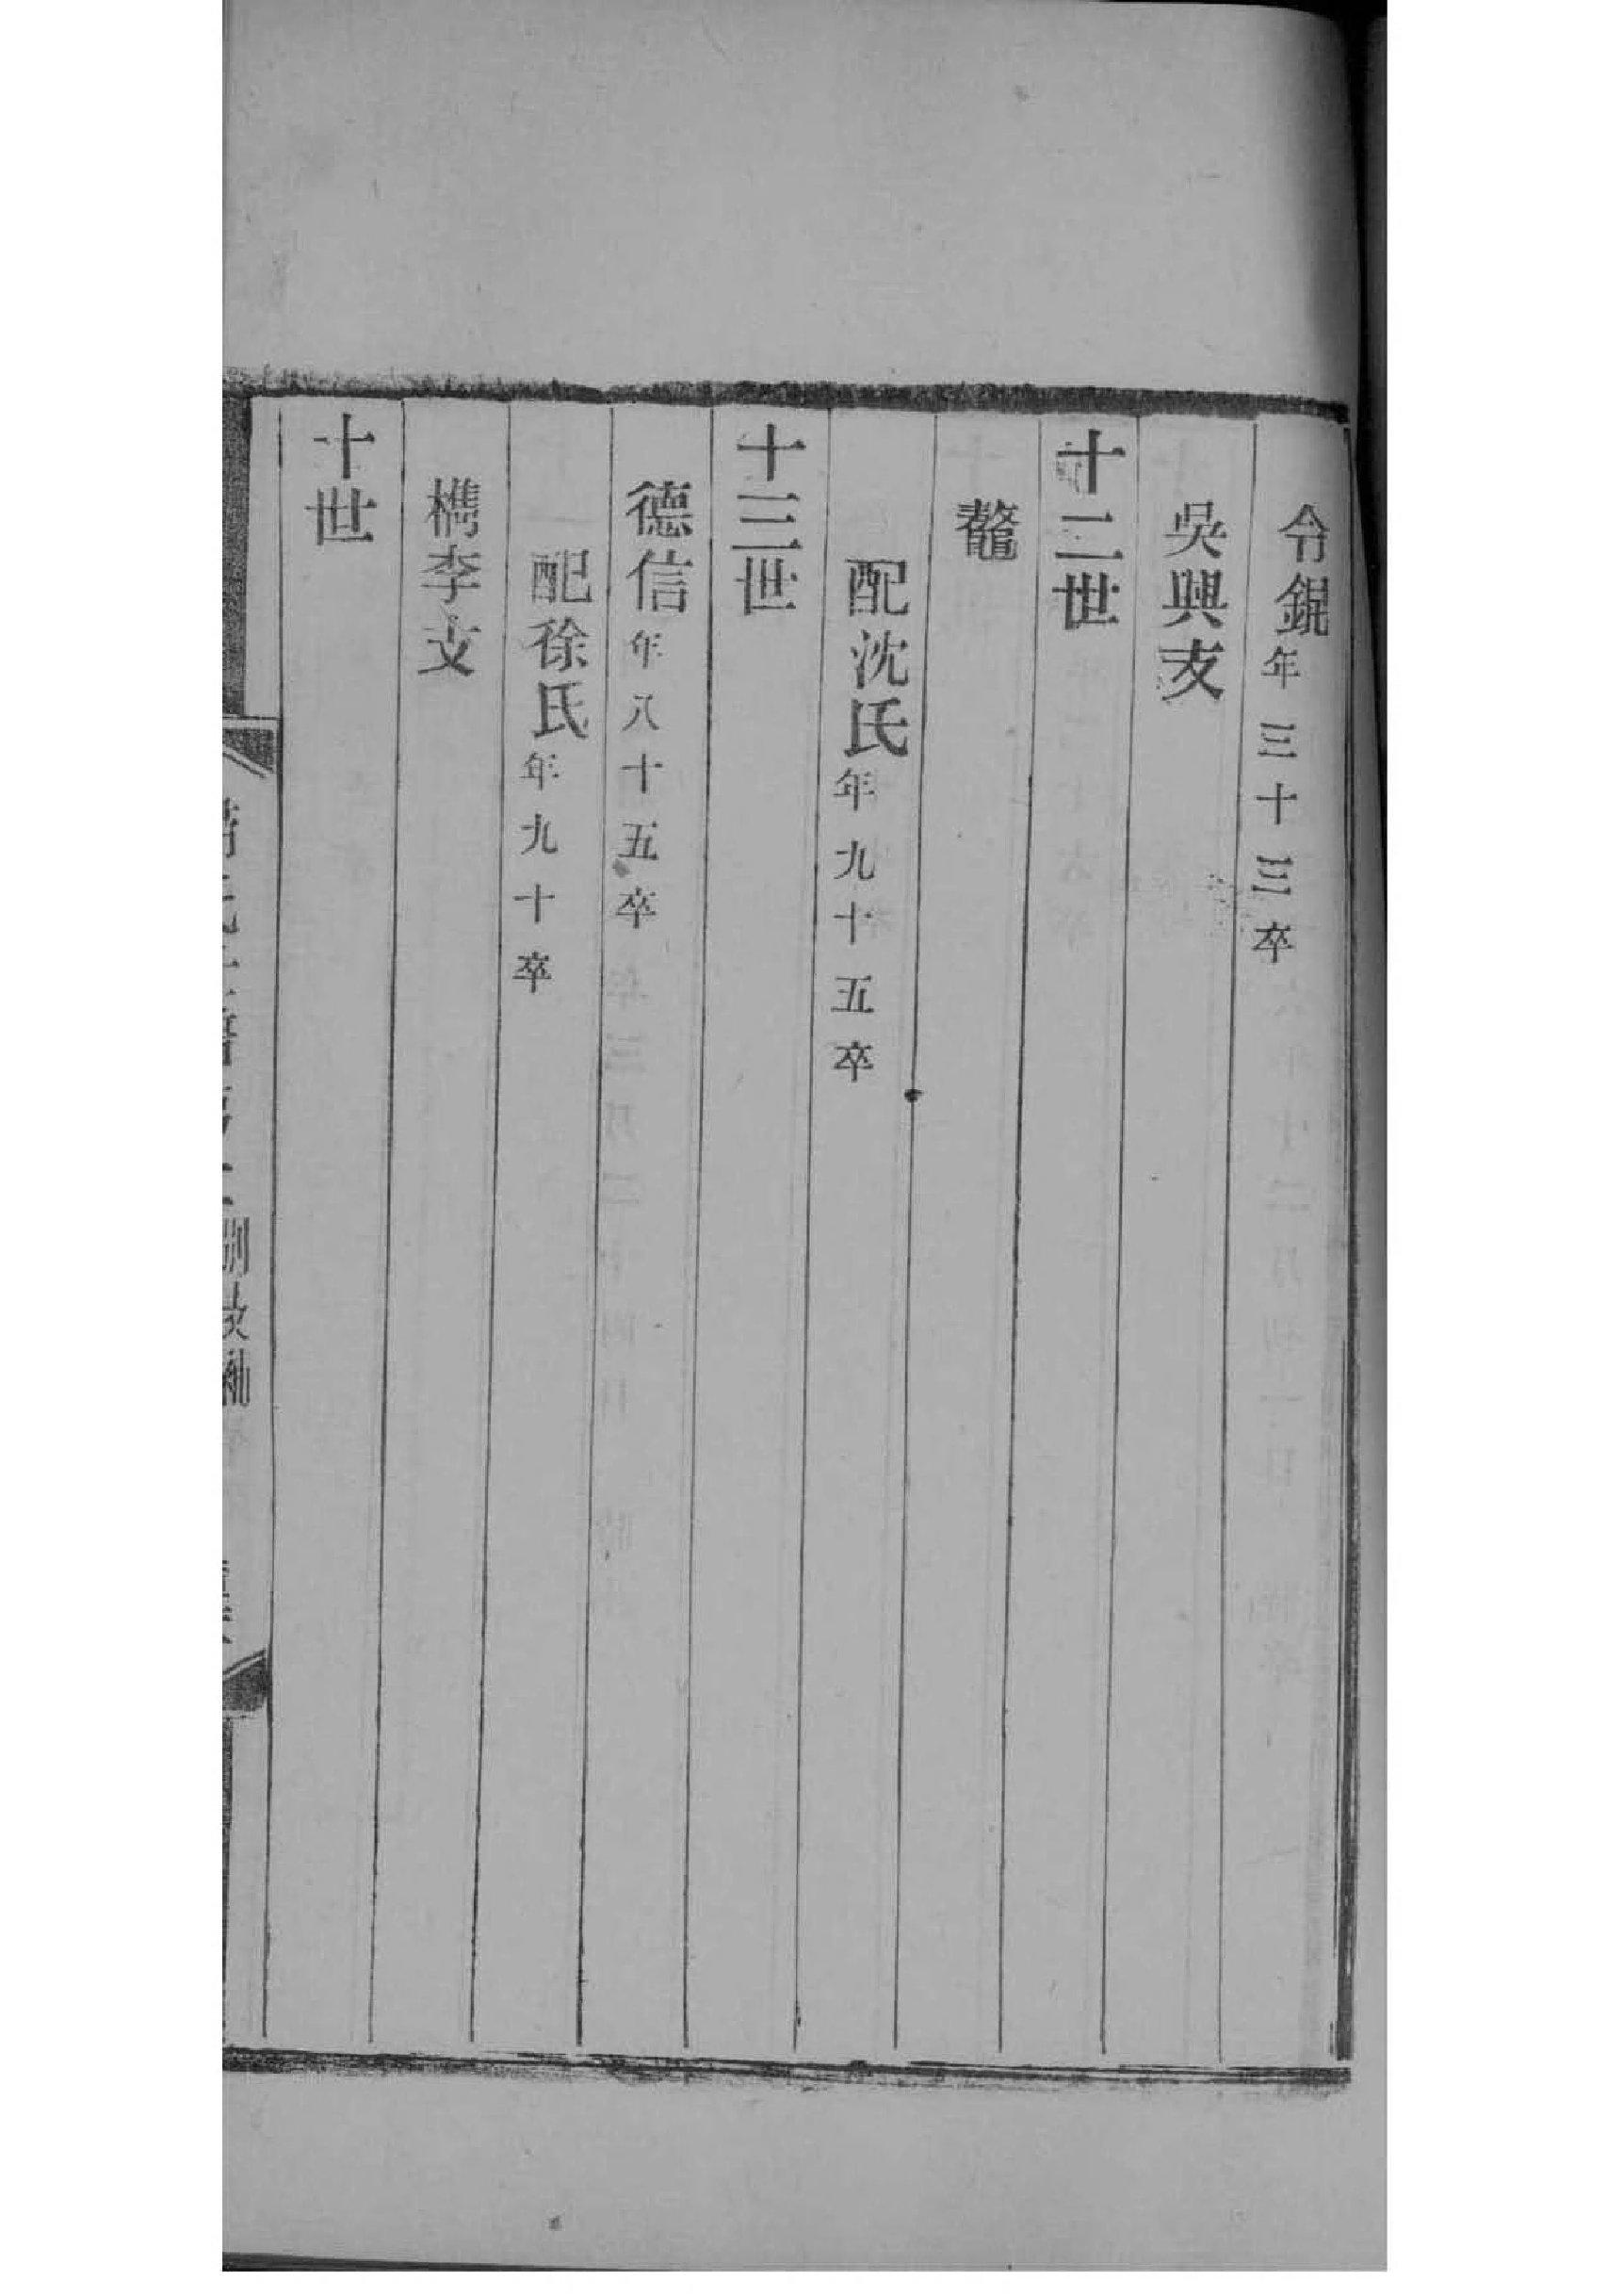 令錕年三十三卒
吳興支
十二世
鼇
配沈氏年九十五卒
十三世
德信年八十五卒
配徐氏年九十卒
檇李支
十世